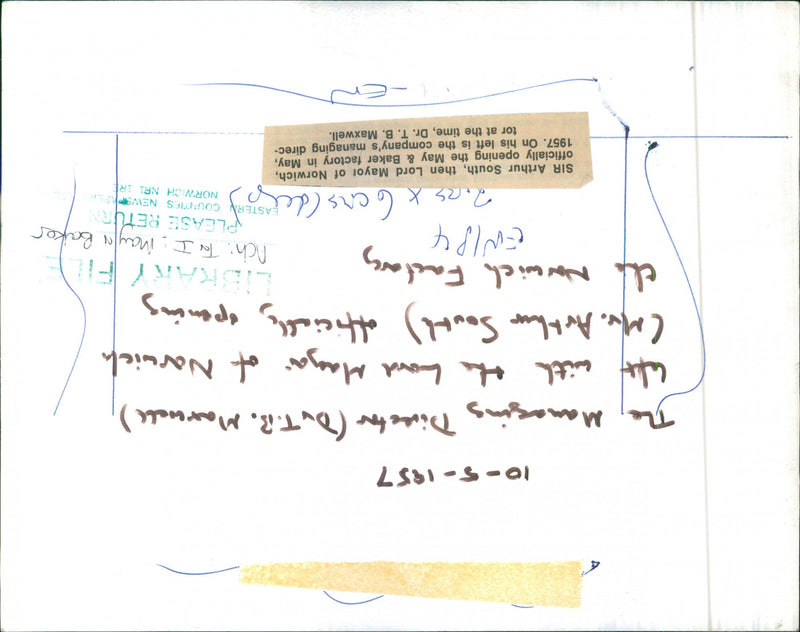 10-5-1957
The Managing Director (Dr T.B. Maxwell)
left with the Lord Mayor of Norwich
(Mr. Arthur South) officially opening
the Norwich Factory
EN/P4
2.25 x 6 cms (deep)
SIR Arthur South, then Lord Mayor of Norwich,
officially opening the May & Baker factory in May,
1957. On his left is the company's managing direc-
tor at the time, Dr. T. B. Maxwell.
EN
LIBRARY FILE
Nch: T I: May & Baker
PLEASE RETURN
EASTERN COUNTIES NEWSPAPERS
NORWICH NR1 1RE